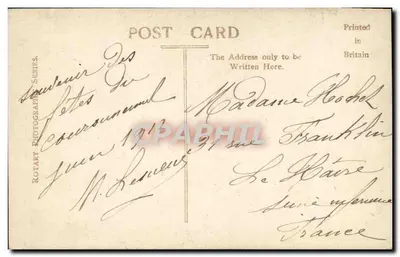 POST CARD
Printed
in
Britain
The Address only to be
Written Here.
ROTARY PHOTOGRAPHIC SERIES.
Souvenir des
fêtes du
couronnement
Juin 1911
M.
Madame Hochet
37 rue Franklin
Le Hâvre
Seine inférieure
France
CPHARTE